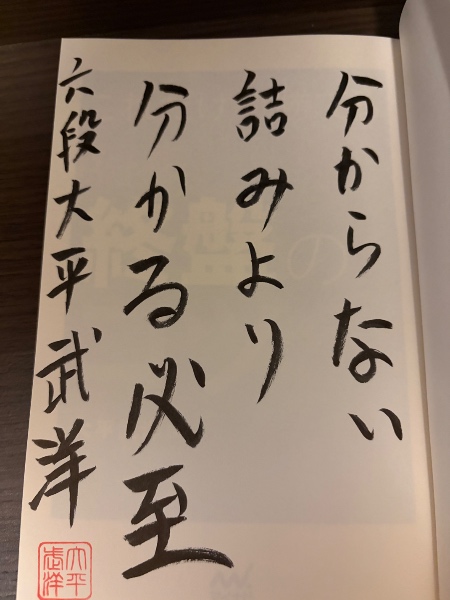 分からない
詰みより
分かる必至
六段大平武洋
大平
武洋